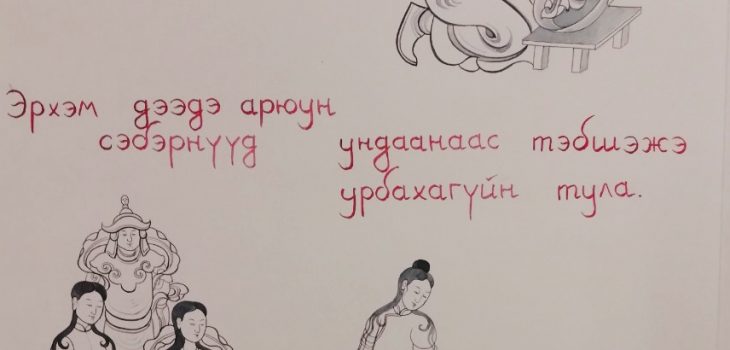 Эрхэм дээдэ арюун
сэбэрнүүд
ундаанаас тэбшэжэ
урбахагүйн тула.